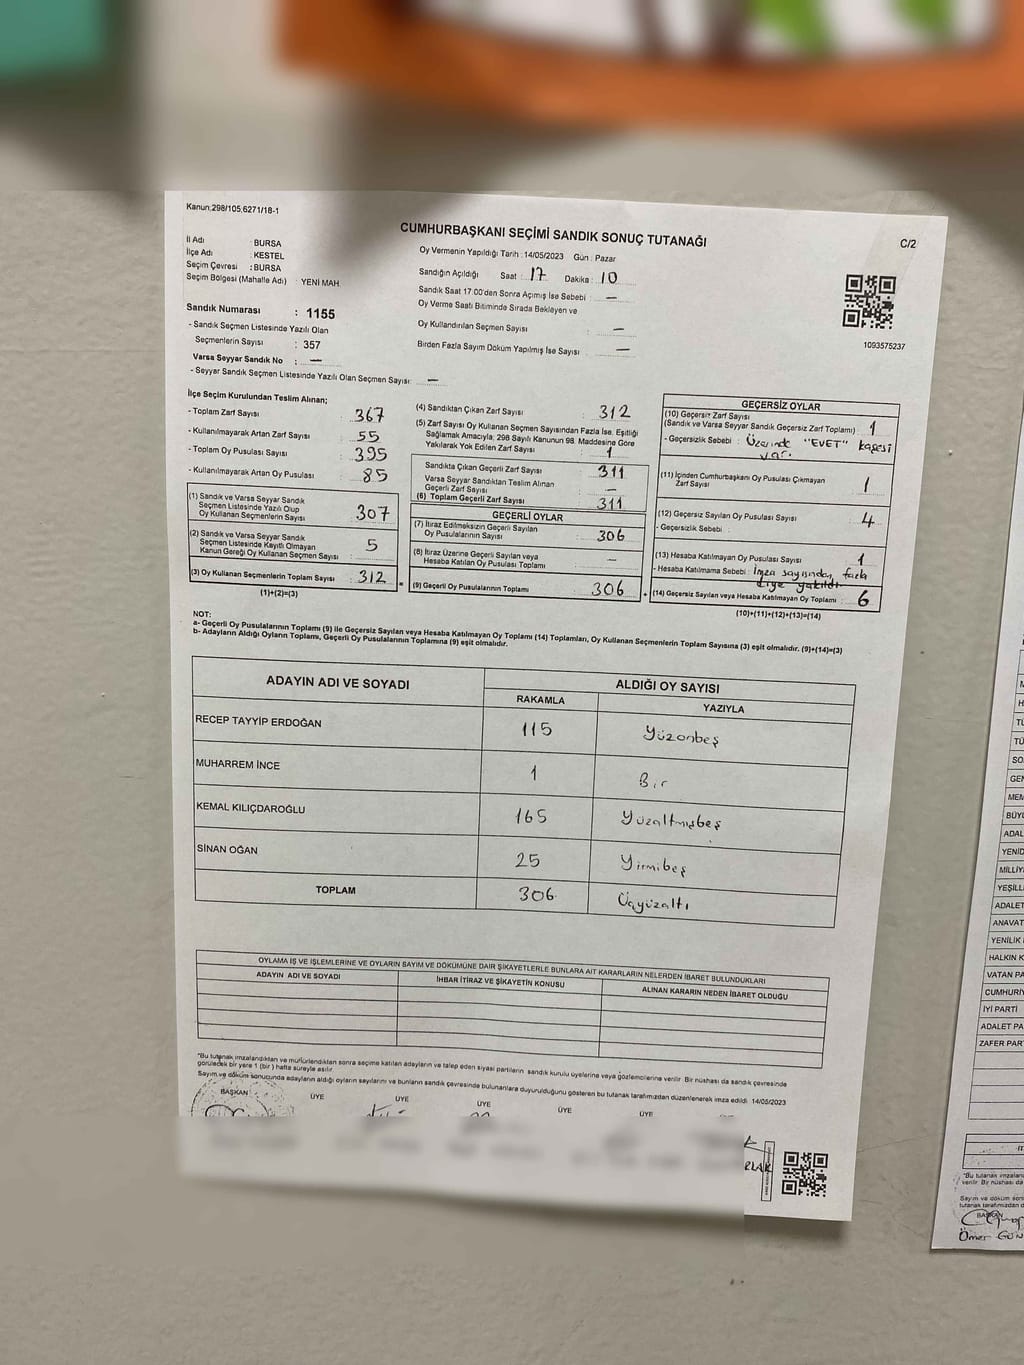 Kanun:298/105,6271/18-1
CUMHURBAŞKANI SEÇİMİ SANDIK SONUÇ TUTANAĞI
C/2
İl Adı : BURSA
İlçe Adı : KESTEL
Seçim Çevresi : BURSA
Seçim Bölgesi (Mahalle Adı) : YENİ MAH.
Oy Vermenin Yapıldığı Tarih : 14/05/2023 Gün : Pazar
Sandığın Açıldığı Saat : 17 Dakika : 10
Sandık Saat 17:00'den Sonra Açımış İse Sebebi : —
Oy Verme Saati Bitiminde Sırada Bekleyen ve
Oy Kullandırılan Seçmen Sayısı : —
Birden Fazla Sayım Döküm Yapılmış İse Sayısı : —
1093575237
Sandık Numarası : 1155
- Sandık Seçmen Listesinde Yazılı Olan
Seçmenlerin Sayısı : 357
Varsa Seyyar Sandık No : —
- Seyyar Sandık Seçmen Listesinde Yazılı Olan Seçmen Sayısı: —
İlçe Seçim Kurulundan Teslim Alınan;
- Toplam Zarf Sayısı : 367
- Kullanılmayarak Artan Zarf Sayısı : 55
- Toplam Oy Pusulası Sayısı : 395
- Kullanılmayarak Artan Oy Pusulası : 85
(1) Sandık ve Varsa Seyyar Sandık
Seçmen Listesinde Yazılı Olup
Oy Kullanan Seçmenlerin Sayısı : 307
(2) Sandık ve Varsa Seyyar Sandık
Seçmen Listesinde Kayıtlı Olmayan
Kanun Gereği Oy Kullanan Seçmen Sayısı : 5
(3) Oy Kullanan Seçmenlerin Toplam Sayısı : 312
(1)+(2)=(3)
(4) Sandıktan Çıkan Zarf Sayısı : 312
(5) Zarf Sayısı Oy Kullanan Seçmen Sayısından Fazla İse, Eşitliği
Sağlamak Amacıyla, 298 Sayılı Kanunun 98. Maddesine Göre
Yakılarak Yok Edilen Zarf Sayısı : 1
Sandıkta Çıkan Geçerli Zarf Sayısı : 311
Varsa Seyyar Sandıktan Teslim Alınan
Geçerli Zarf Sayısı : —
(6) Toplam Geçerli Zarf Sayısı : 311
GEÇERLİ OYLAR
(7) İtiraz Edilmeksizin Geçerli Sayılan
Oy Pusulalarının Sayısı : 306
(8) İtiraz Üzerine Geçerli Sayılan veya
Hesaba Katılan Oy Pusulası Toplamı : —
= (9) Geçerli Oy Pusulalarının Toplamı : 306
GEÇERSİZ OYLAR
(10) Geçersiz Zarf Sayısı
(Sandık ve Varsa Seyyar Sandık Geçersiz Zarf Toplamı) : 1
- Geçersizlik Sebebi : Üzerinde "EVET" kaşesi
var.
(11) İçinden Cumhurbaşkanı Oy Pusulası Çıkmayan
Zarf Sayısı : 1
(12) Geçersiz Sayılan Oy Pusulası Sayısı : 4
- Geçersizlik Sebebi :
(13) Hesaba Katılmayan Oy Pusulası Sayısı : 1
- Hesaba Katılmama Sebebi : İmza sayısından fazla
diye yakıldı.
+ (14) Geçersiz Sayılan veya Hesaba Katılmayan Oy Toplamı : 6
(10)+(11)+(12)+(13)=(14)
NOT:
a- Geçerli Oy Pusulalarının Toplamı (9) ile Geçersiz Sayılan veya Hesaba Katılmayan Oy Toplamı (14) Toplamları, Oy Kullanan Seçmenlerin Toplam Sayısına (3) eşit olmalıdır. (9)+(14)=(3)
b- Adayların Aldığı Oyların Toplamı, Geçerli Oy Pusulalarının Toplamına (9) eşit olmalıdır.
ADAYIN ADI VE SOYADI
ALDIĞI OY SAYISI
RAKAMLA YAZIYLA
RECEP TAYYİP ERDOĞAN 115 Yüzonbeş
MUHARREM İNCE 1 Bir
KEMAL KILIÇDAROĞLU 165 Yüzaltmışbeş
SİNAN OĞAN 25 Yirmibeş
TOPLAM 306 Üçyüzaltı
OYLAMA İŞ VE İŞLEMLERİNE VE OYLARIN SAYIM VE DÖKÜMÜNE DAİR ŞİKAYETLERLE BUNLARA AİT KARARLARIN NELERDEN İBARET BULUNDUKLARI
ADAYIN ADI VE SOYADI İHBAR İTİRAZ VE ŞİKAYETİN KONUSU ALINAN KARARIN NEDEN İBARET OLDUĞU
"Bu tutanak imzalandıktan ve mühürlendikten sonra seçime katılan adayların ve talep eden siyasi partilerin sandık kurulu üyelerine veya gözlemcilerine verilir. Bir nüshası da sandık çevresinde
görülecek bir yere 1 (bir) hafta süreyle asılır.
Sayım ve döküm sonucunda adayların aldığı oyların sayılarını ve bunların sandık çevresinde bulunanlara duyurulduğunu gösteren bu tutanak tarafımızdan düzenlenerek imza edildi. 14/05/2023
BAŞKAN ÜYE ÜYE ÜYE ÜYE ÜYE
TÜ
TÜ
SO
GEN
MEM
BÜYÜ
ADAL
YENİD
MİLLİY
YEŞİLL
ADALET
ANAVAT
YENİLİK
HALKIN K
VATAN PA
CUMHURİY
İYİ PARTİ
ADALET PA
ZAFER PAR
"Bu tutanak imzalan
verilir. Bir nüshası da
Sayım ve döküm son
tutanak tarafımızdan d
BAŞKAN
Ömer GÜN